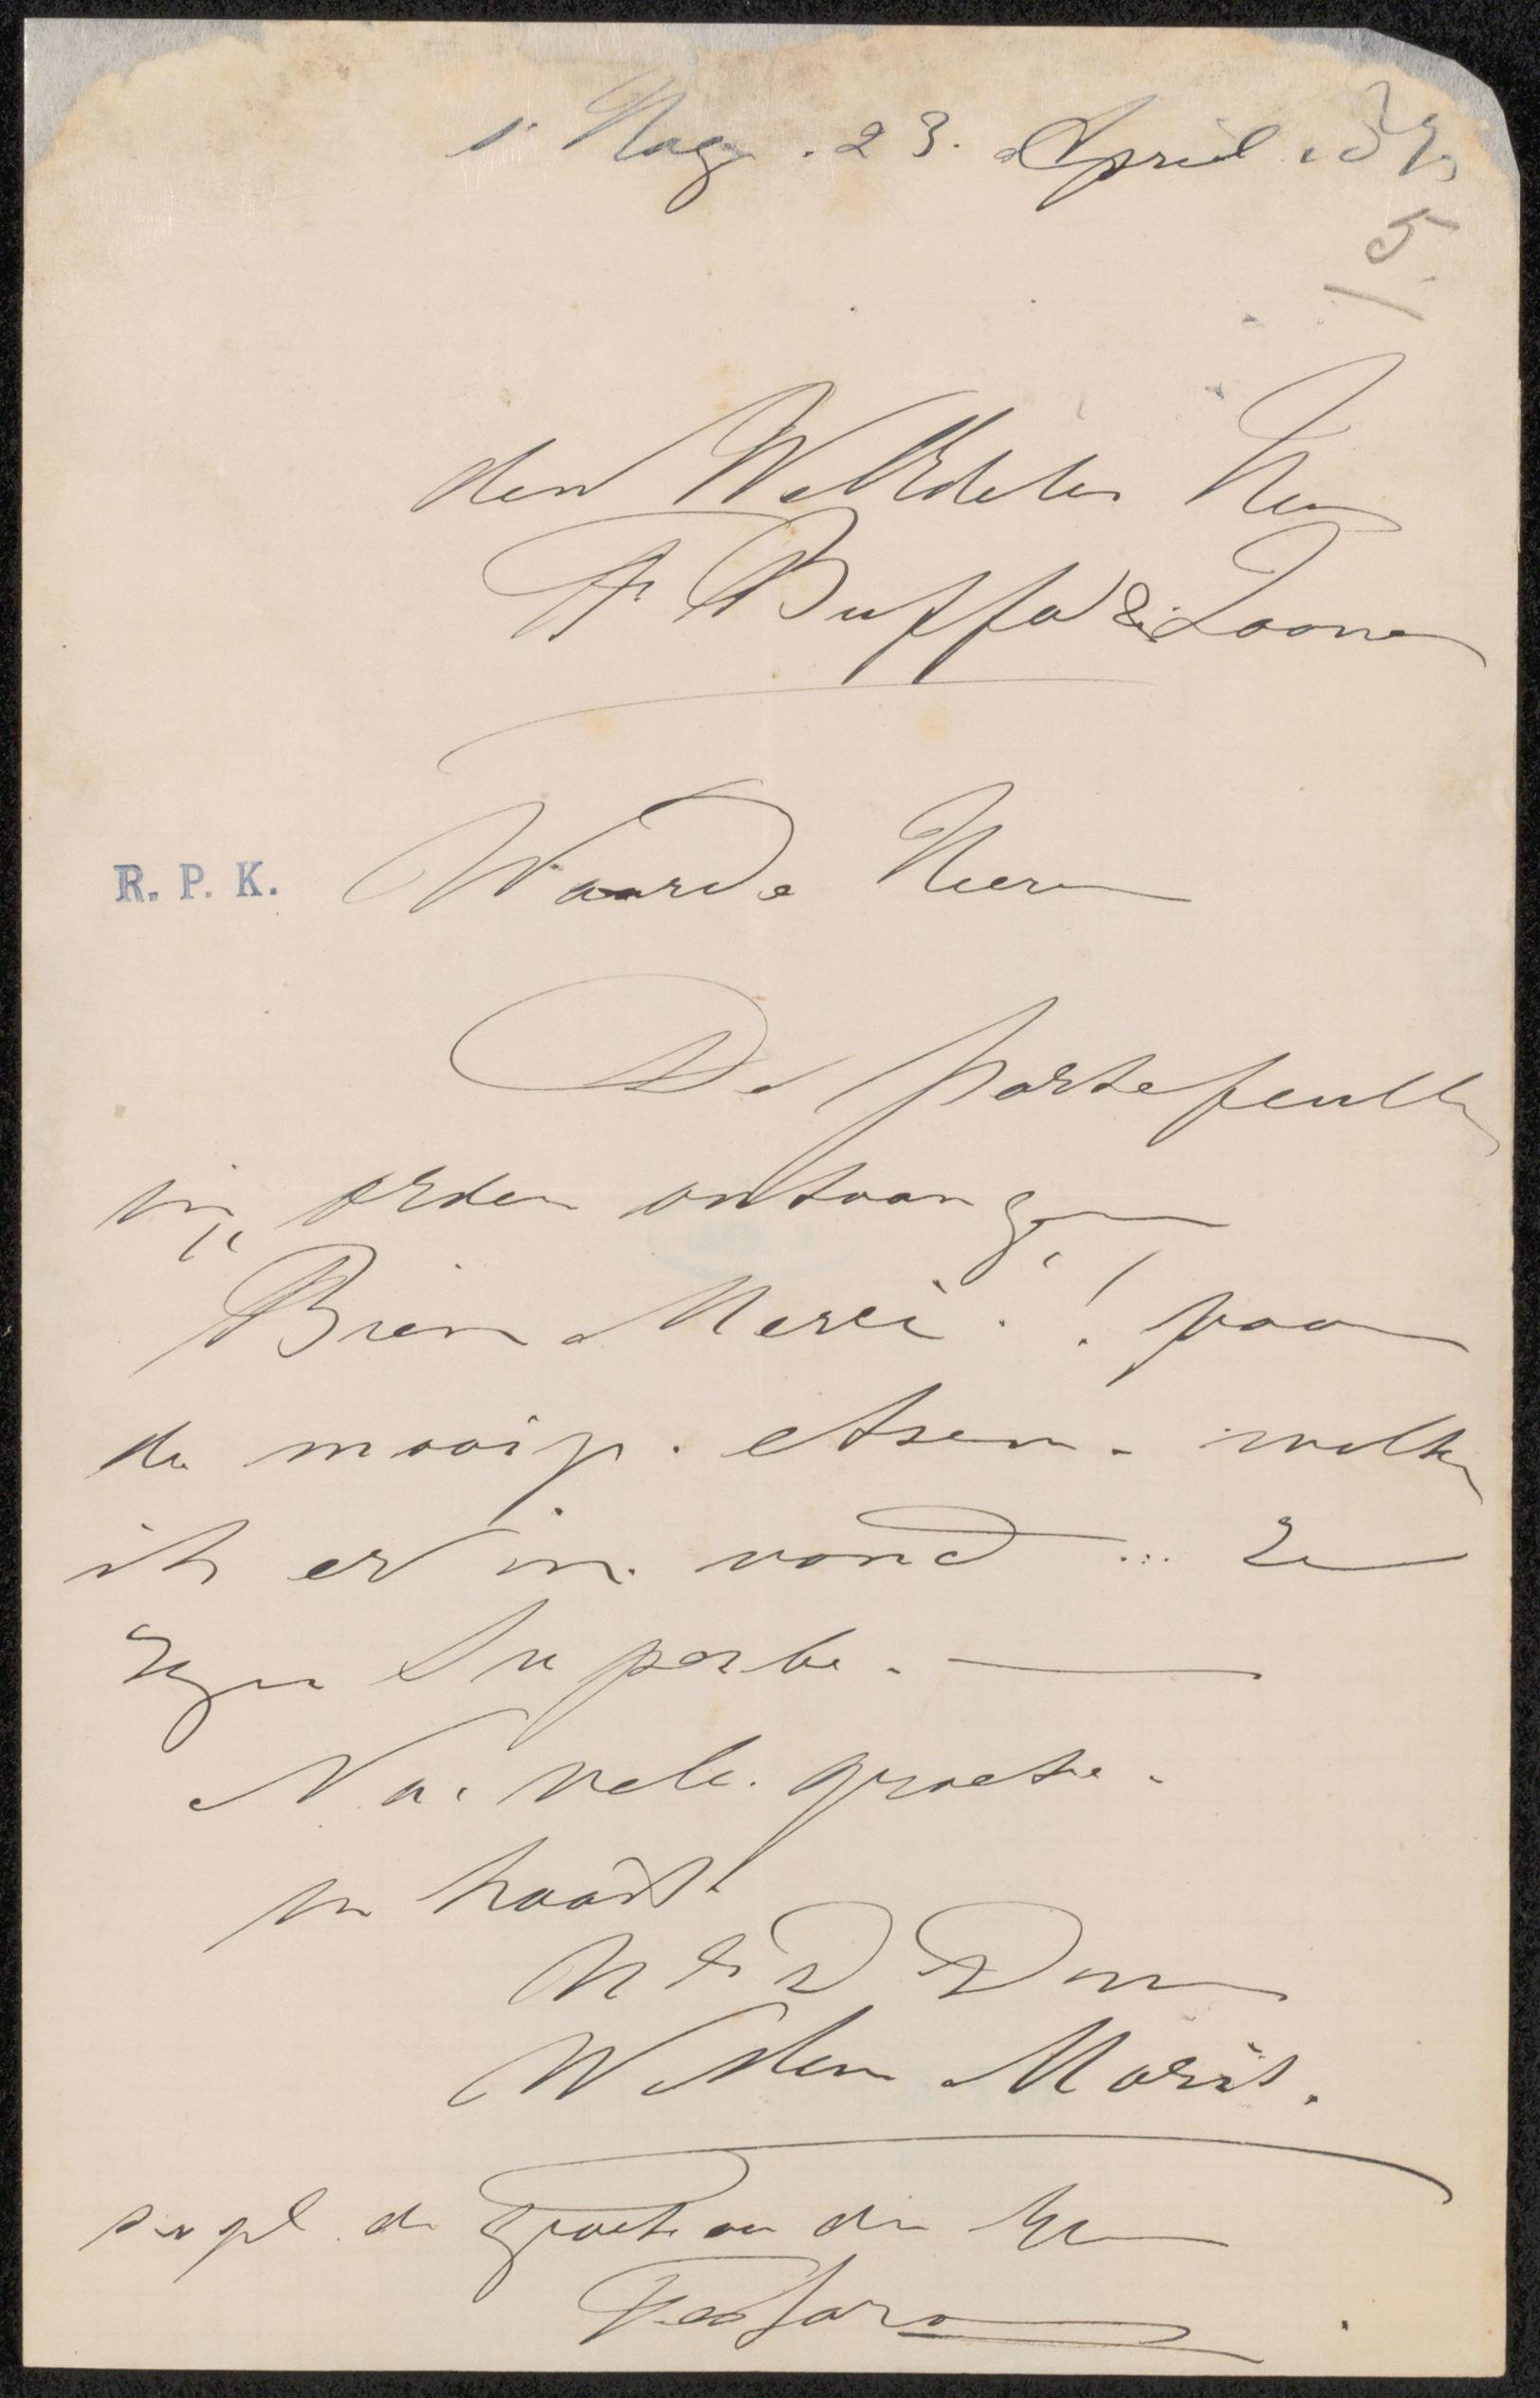 s' Hage. 23. April
5
den WelEdelen Heer
Fr. Buffa & Zoonen
R. P. K.
Waarde Heeren
De portefeuille
in orden ontvangen
Bien Merci! voor
de mooije. etsen - welke
ik er in. vond ... Ze
zijn Superbe. —
Na. vele. groete.
in haast
Willem Maris.
s'il v pl de groete aan den heer